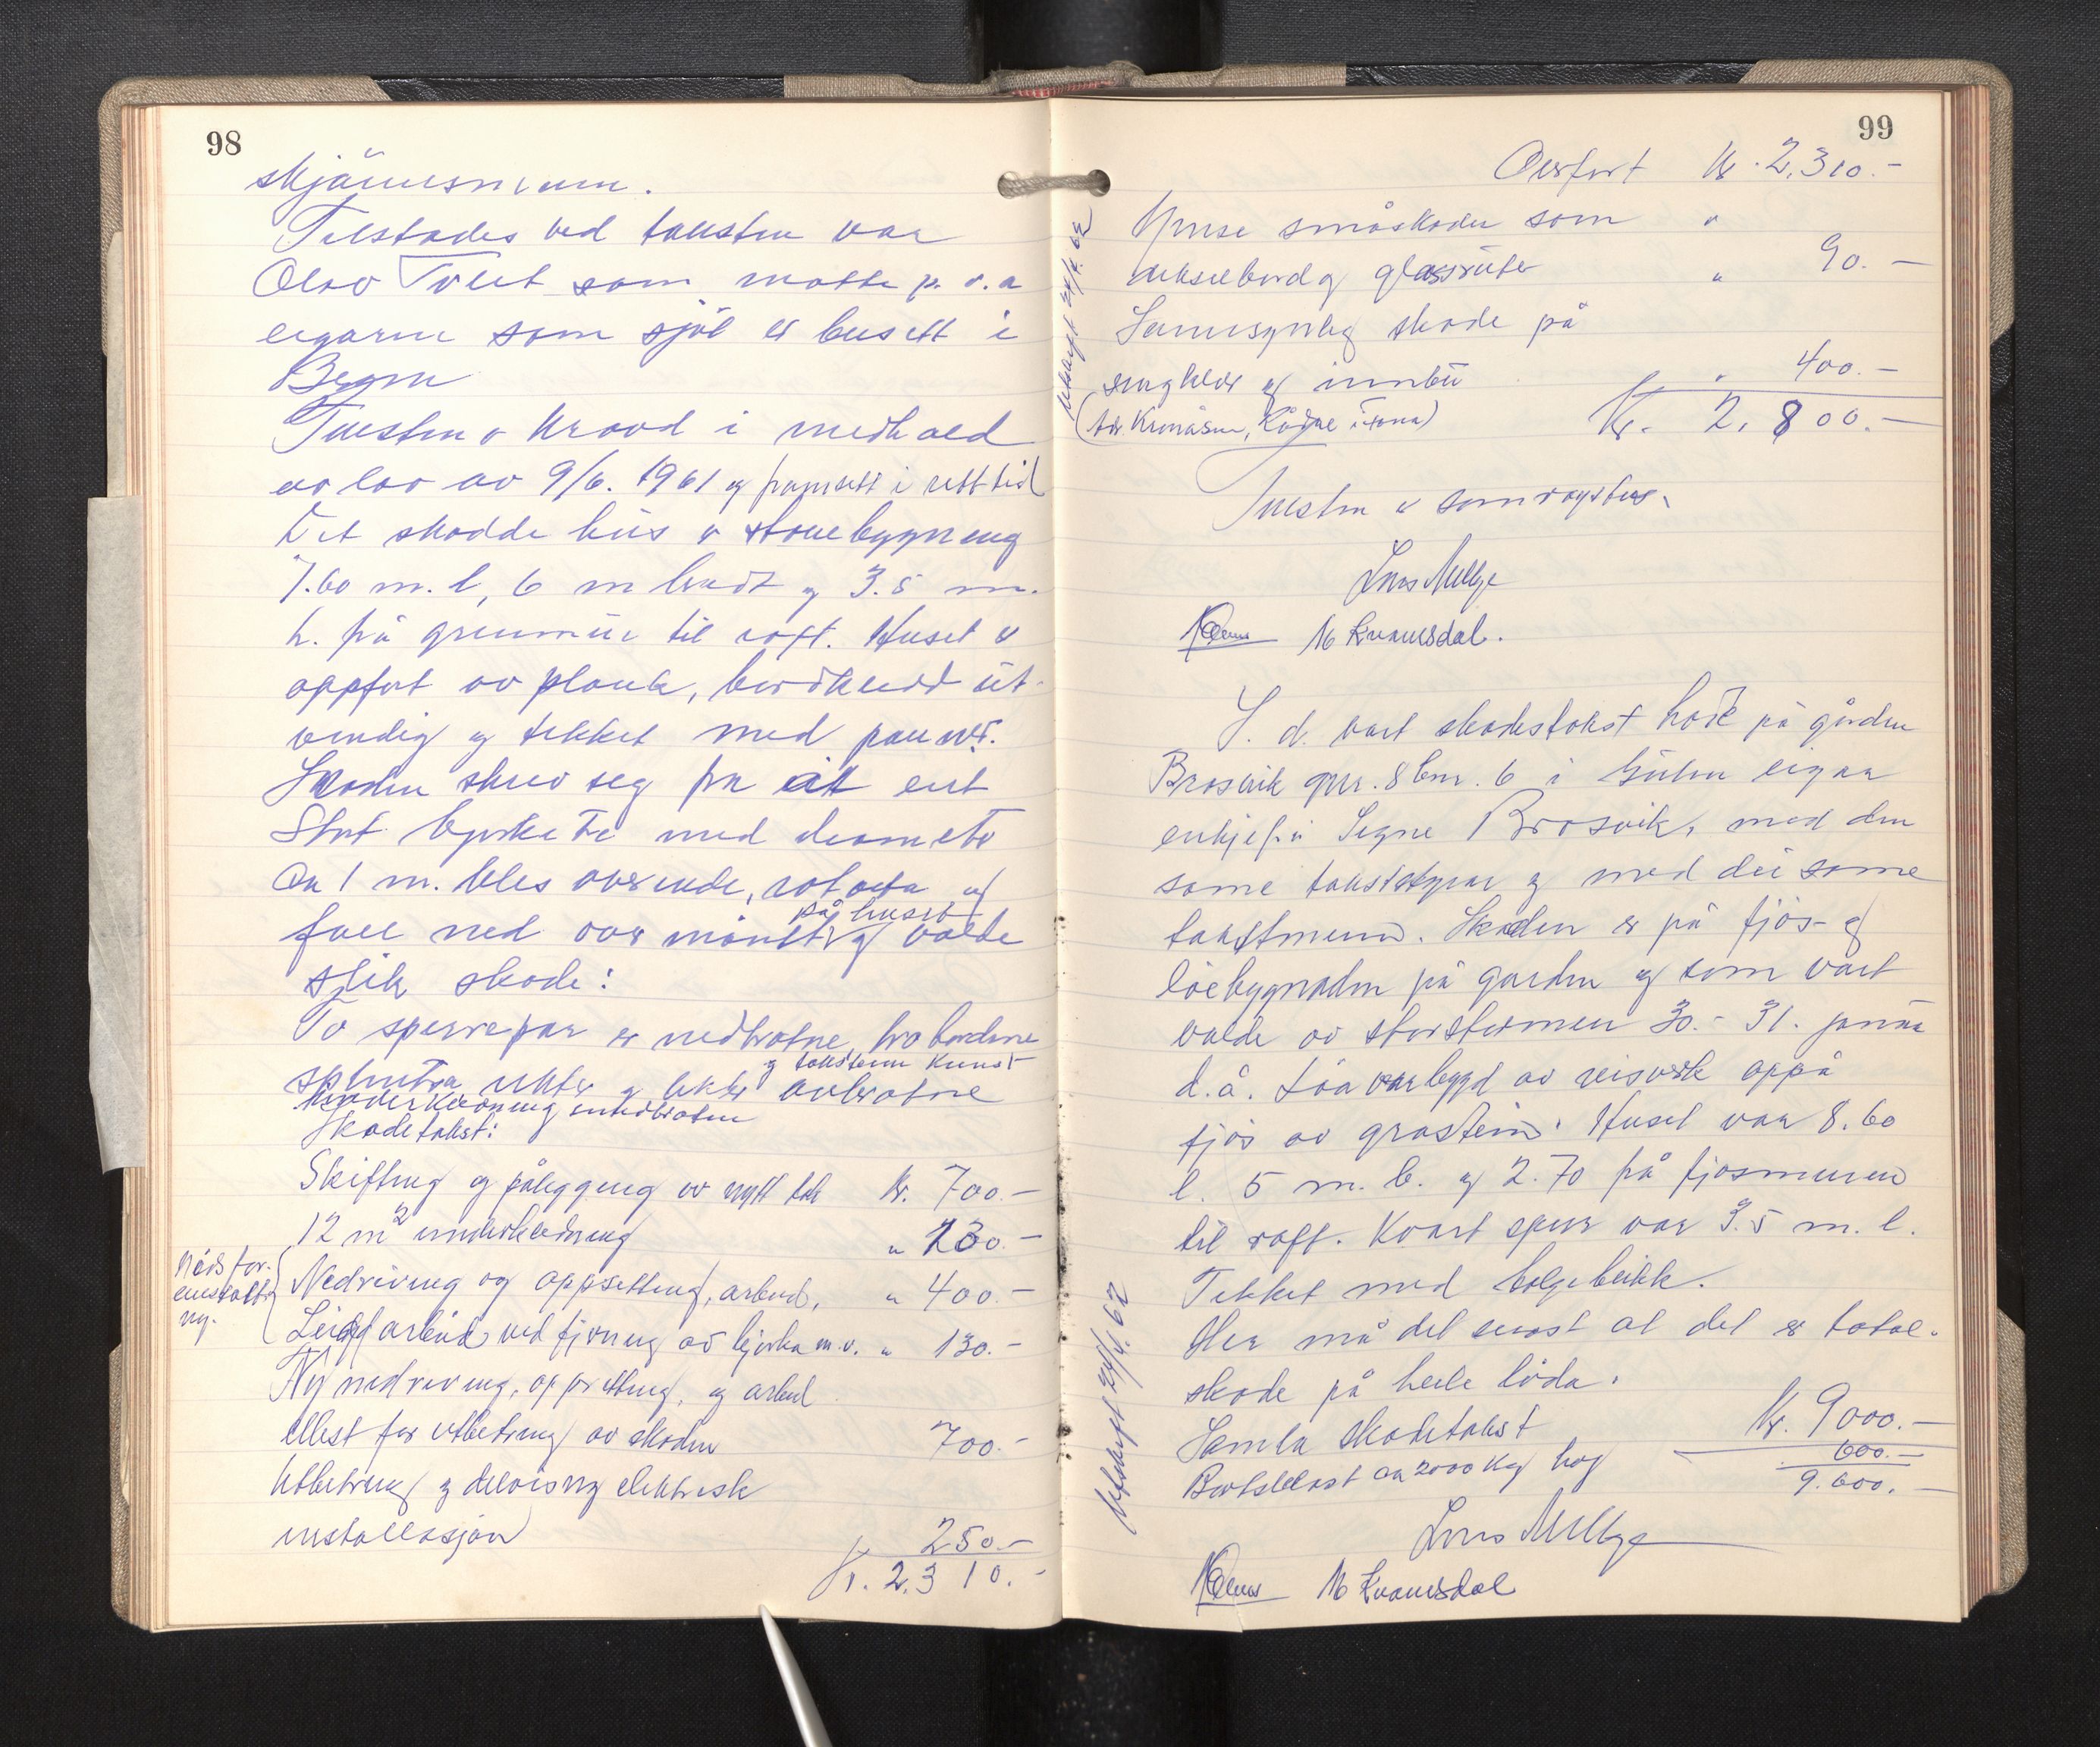 98
skjönnsmenn.
Tilstades ved taksten var
Olav Tveit som møtte p. v. a
eigaren som sjøl er busett i
Bergen
Taksten er kravd i medhald
av lov av 9/6. 1961 og framsett i rett tid
Det skadde hus er stovebygning
7.60 m. l, 6 m breidt og 3.5 m.
h. frå grunnmur til raft. Huset er
oppført av plank, bordkledd ut-
vendig og tekket med panner.
Skaden skrev seg fra at eit
Stort bjørketre med diameter
ca 1 m. bles overende, og
fall ned over mønet på huset og valde
slik skade:
To sperrepar er nedbrotne, trobordene
splintra, rekter og lekter og takstein knust avbrotne
Underkledning innebroten
Skadetakst:
Skifting og pålegging av nytt tak Kr. 700.-
12 m2 underkledning " 130.-
Nedriving og oppsetting, arbeid, " 400.-
Leigd arbeid ved fjerning av bjørka m.v. " 130.-
Ny nedriving, oppretting, og arbeid
ellest for utbetring av skaden 700.-
Utbetring og delvis ny elektrisk
installasjon 250.-
Kr. 2.310.-
99
Overført Kr. 2.310.-
Ymse småskader som "
vekselbord og glassruter " 90.-
Sannsynleg skade på
sengklær og innbu " 400.-
Kr. 2.800.-
Utskrift 24/4. 62
Taksten er samrøystes.
Lars Mellbye
M Kvamsdal.
S. d. vart skadetakst halde på garden
Brosvik gnr. 8 bnr. 6 i Gulen eigar
enkjefru Signe Brosvik, med den
same takststyrar og med dei same
takstmenn. Skaden er på fjøs- og
löebygnaden på garden og som vart
valde av storstormen 30.- 31. januar
d.å. Löa var bygd av reisverk oppå
fjøs av gråstein. Huset var 8.60
l. 5 m. b. og 2.70 frå fjøsmuren
til raft. Kvart sperr var 3.5 m. l.
Tekket med bølgeblikk.
Her må det seiast at det er total-
skade på heile löda.
Samla skadetakst Kr. 9000.-
Bortblåst ca 2000 kg høy 600.-
9.600.-
Utskrift 24/4. 62
Lars Mellbye
M Kvamsdal